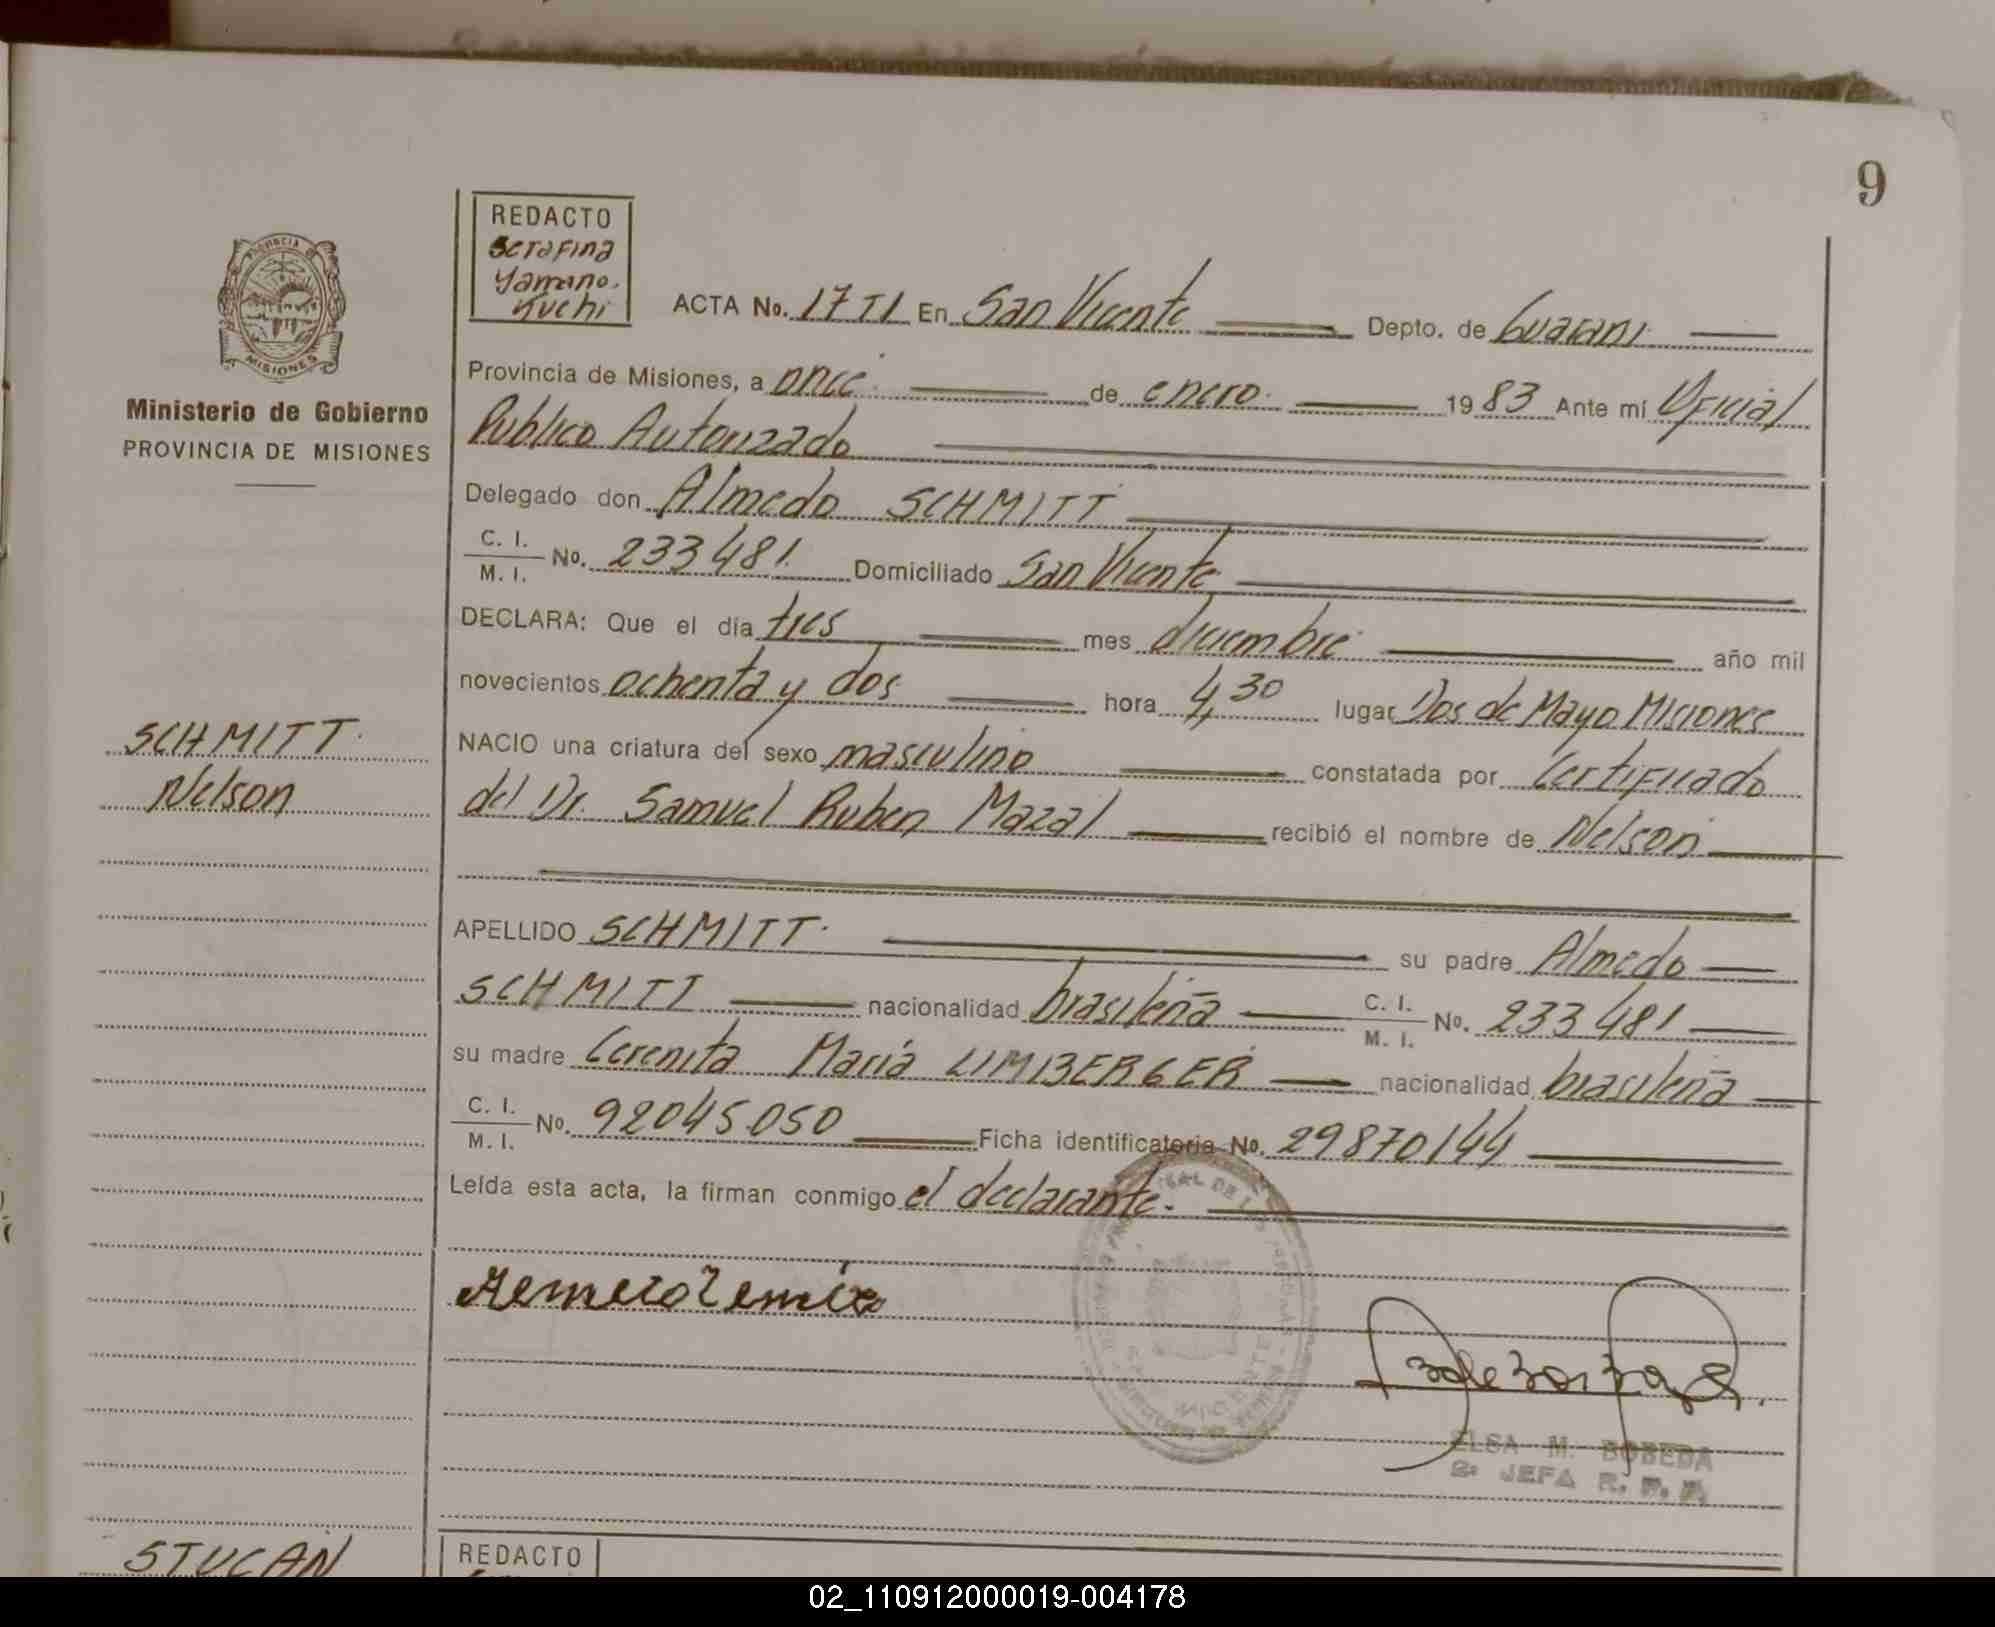 9
REDACTO
Serafina
Yamano.
Kuchi
PROVINCIA DE
MISIONES
Ministerio de Gobierno
PROVINCIA DE MISIONES
ACTA No. 17 TI En San Vicente Depto. de Guarani
Provincia de Misiones, a once de enero. 1983 Ante mí Oficial
Publico Autorizado
Delegado don Almedo SCHMITT
C. I. / M. I. No. 233 481. Domiciliado San Vicente
DECLARA: Que el día tres mes diciembre año mil
novecientos ochenta y dos hora 4,30 lugar Dos de Mayo Misiones
SCHMITT.
Nelson
NACIO una criatura del sexo masculino constatada por Certificado
del Dr. Samuel Ruben Mazal recibió el nombre de Nelson
APELLIDO SCHMITT. su padre Almedo
SCHMITT nacionalidad brasileña C. I. / M. I. No. 233 481
su madre Cerenita María LIMBERGER nacionalidad brasileña
C. I. / M. I. No. 92045.050 Ficha identificatoria No. 29870144
Leída esta acta, la firman conmigo el declarante.
ELSA M. BOBEDA
2ª JEFA R. P.
STUCAN
REDACTO
02_110912000019-004178